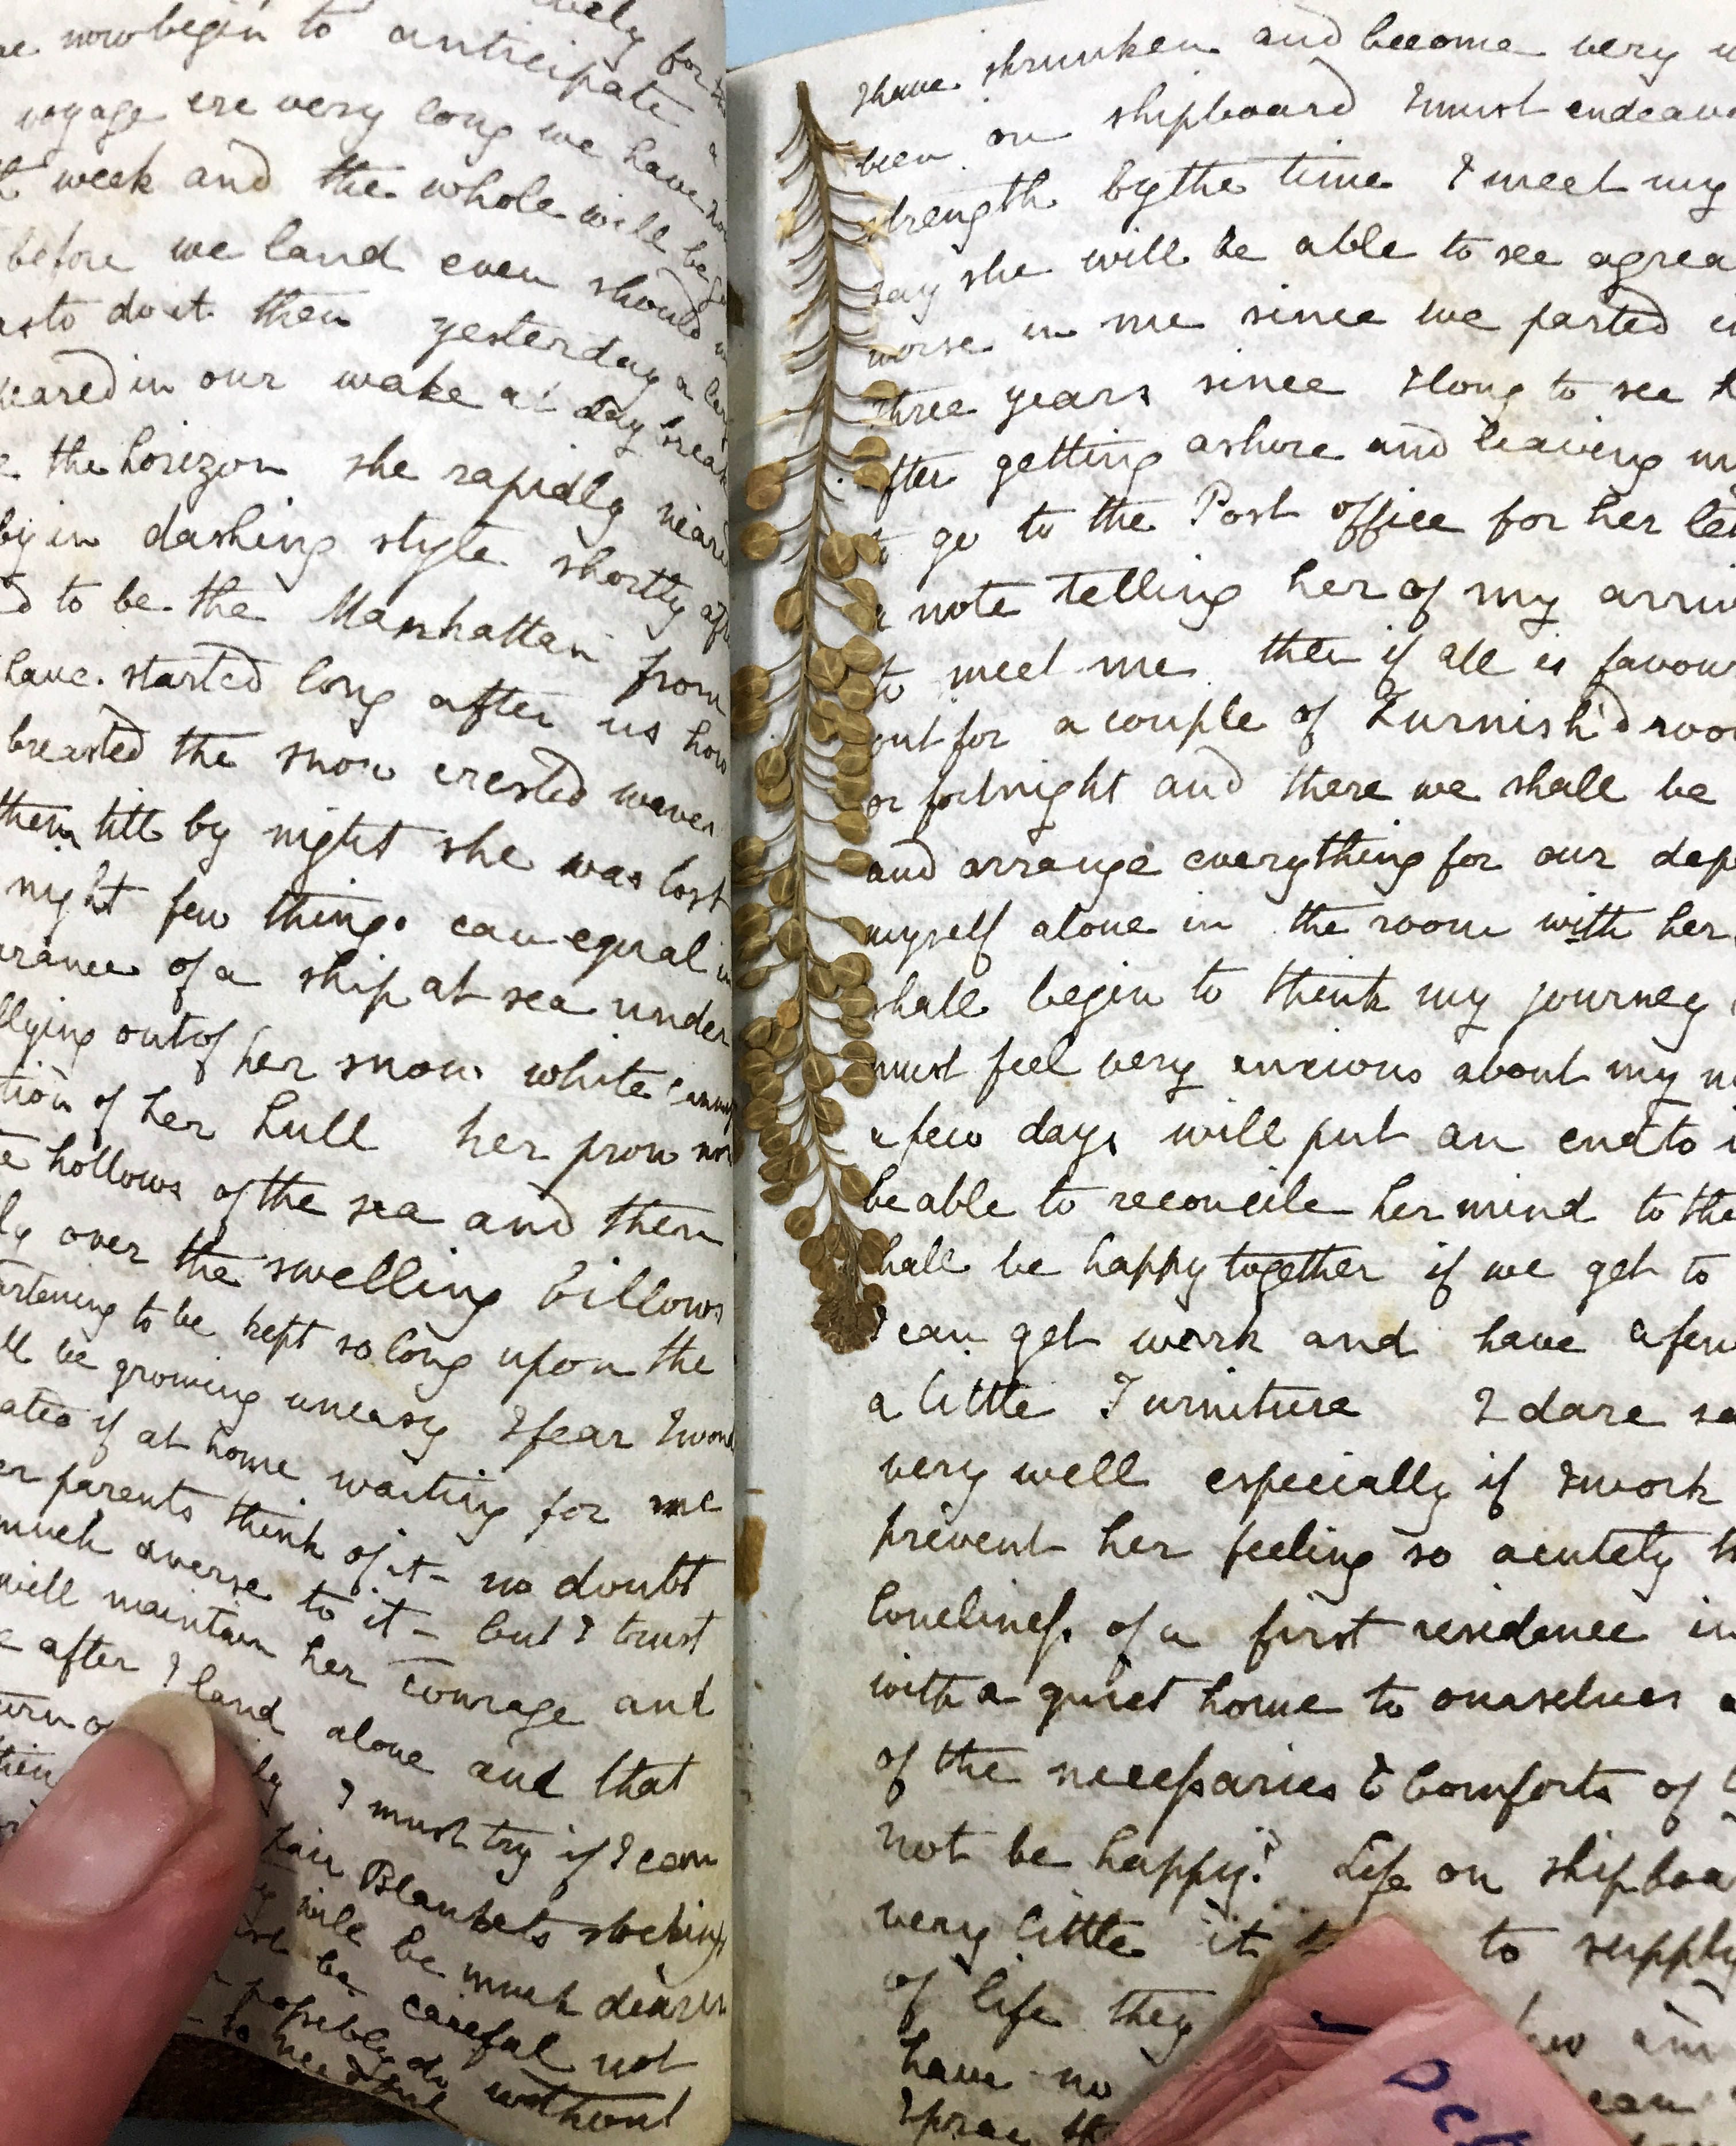 now begin to anticipate
voyage ere very long we have
week and the whole will be
before we land even should
as to do it then yesterday a
in our wake at day break
the horizon she rapidly
by in dashing style shortly
to be the Manhattan from
have started long after us how
breasted the snow crested waves
them till by night she was lost
night few things can equal
of a ship at sea under
out of her snow white
of her hull her prow
hollows of the sea and then
over the swelling billows
to be kept so long upon the
be growing uneasy I fear I
if at home waiting for me
parents think of it - no doubt
much averse to it - but I trust
will maintain her courage and
after I land alone and that
I must try if I can
pair Blankets
will be much
be careful not
possibly do without
I have shrunken and become very
been on shipboard I must endeav
strength by the time I meet my
say she will be able to see a grea
worse in me since we parted
three years since I long to see
after getting ashore and leaving
to go to the Post office for her
a note telling her of my arri
to meet me then if all is favou
out for a couple of Furnish'd roo
or fortnight and there we shall be
and arrange everything for our dep
myself alone in the room with her
shall begin to think my journey
must feel very anxious about my
a few days will put an end to
be able to reconcile her mind to the
shall be happy together if we get to
I can get work and have a few
a little Furniture I dare sa
very well especially if I work
prevent her feeling so acutely
loneliness of a first residence in
with a quiet home to ourselves
of the necessaries & Comforts of
not be happy? Life on shipboa
very little it to supply
of life they
have no
I pray